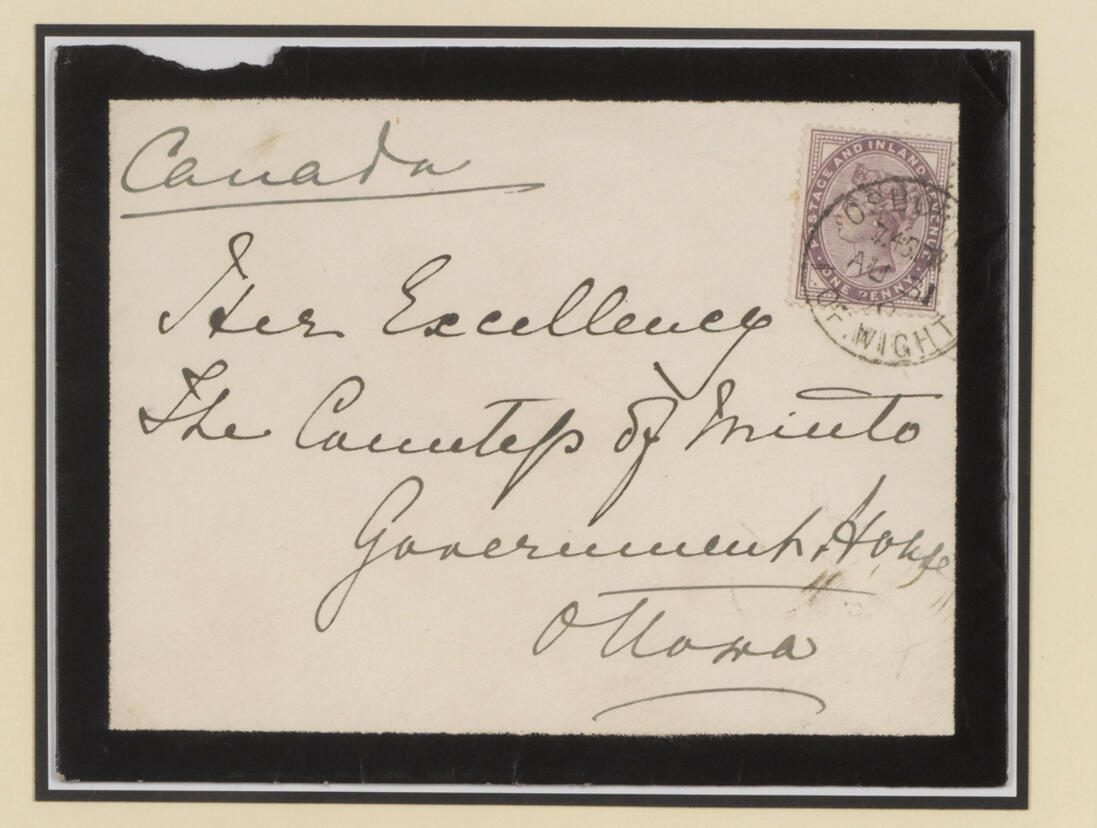 Canada
Her Excellency
The Countess of Minto
Government House
Ottawa
POSTAGE AND INLAND REVENUE
ONE PENNY
OF WIGHT